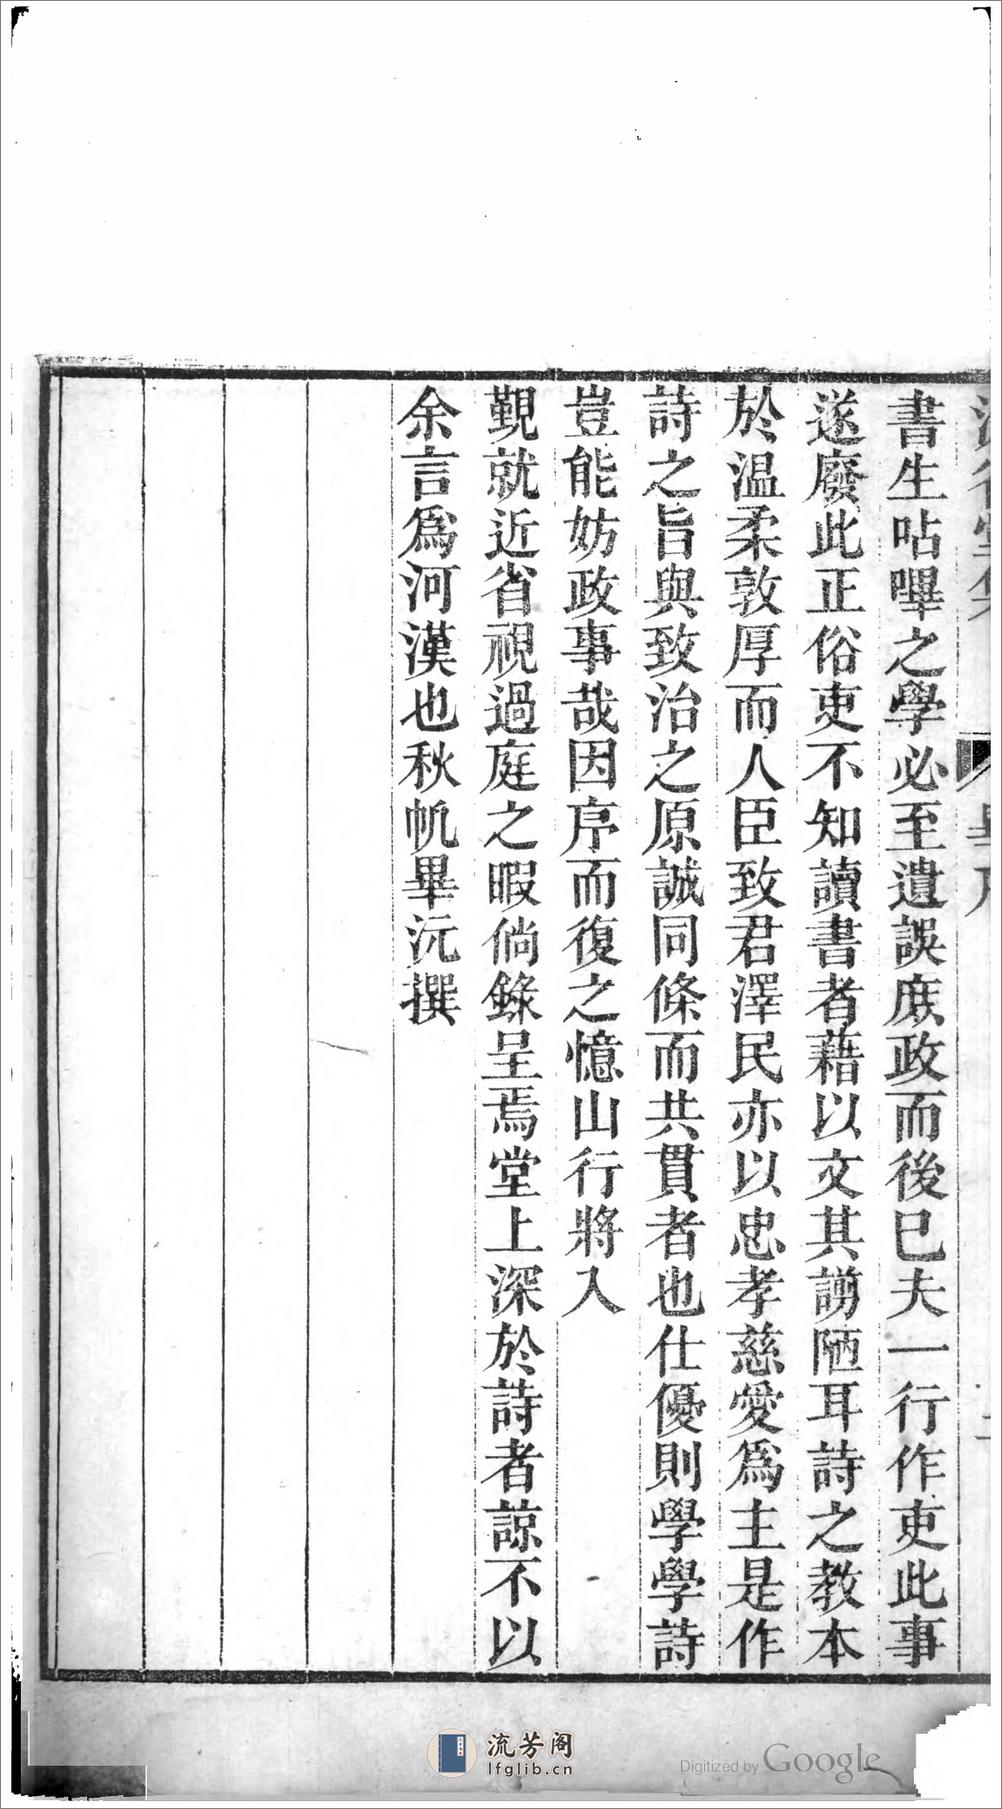 書生呫嗶之學必至遺誤庶政而後已夫一行作吏此事
遂廢此正俗吏不知讀書者藉以文其謭陋耳詩之教本
於温柔敦厚而人臣致君澤民亦以忠孝慈愛爲主是作
詩之旨與致治之原誠同條而共貫者也仕優則學學詩
豈能妨政事哉因序而復之憶山行將入
覲就近省視過庭之暇倘錄呈焉堂上深於詩者諒不以
余言爲河漢也秋帆畢沅撰
流芳阁
lfglib.cn
Digitized by Google